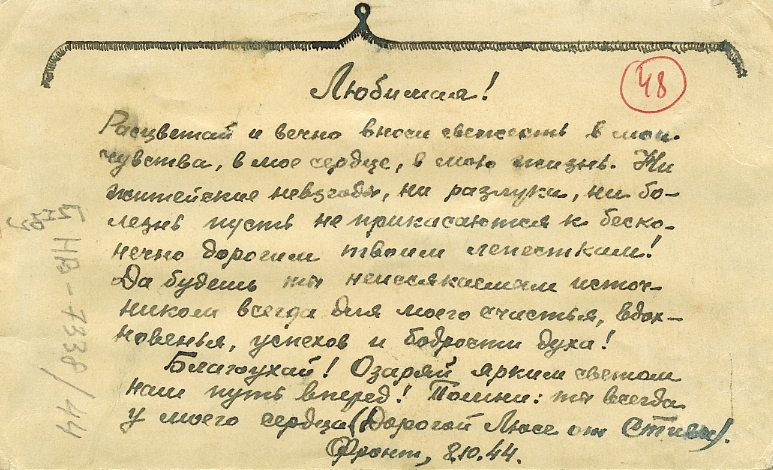 Любимая!
48
Расцветай и вечно вноси свежесть в мои
чувства, в мое сердце, в мою жизнь. Ни
житейские невзгоды, ни разлуки, ни бо-
лезнь пусть не прикасаются к беско-
нечно дорогим твоим лепесткам!
Да будешь ты неиссякаемым источ-
ником всегда для моего счастья, вдох-
новенья, успехов и бодрости духа!
Благоухай! Озаряй ярким светом
наш путь вперед! Помни: ты всегда
у моего сердца (Дорогой Люсе от Стивы).
Фронт, 8.10.44.
НВ-7338/44